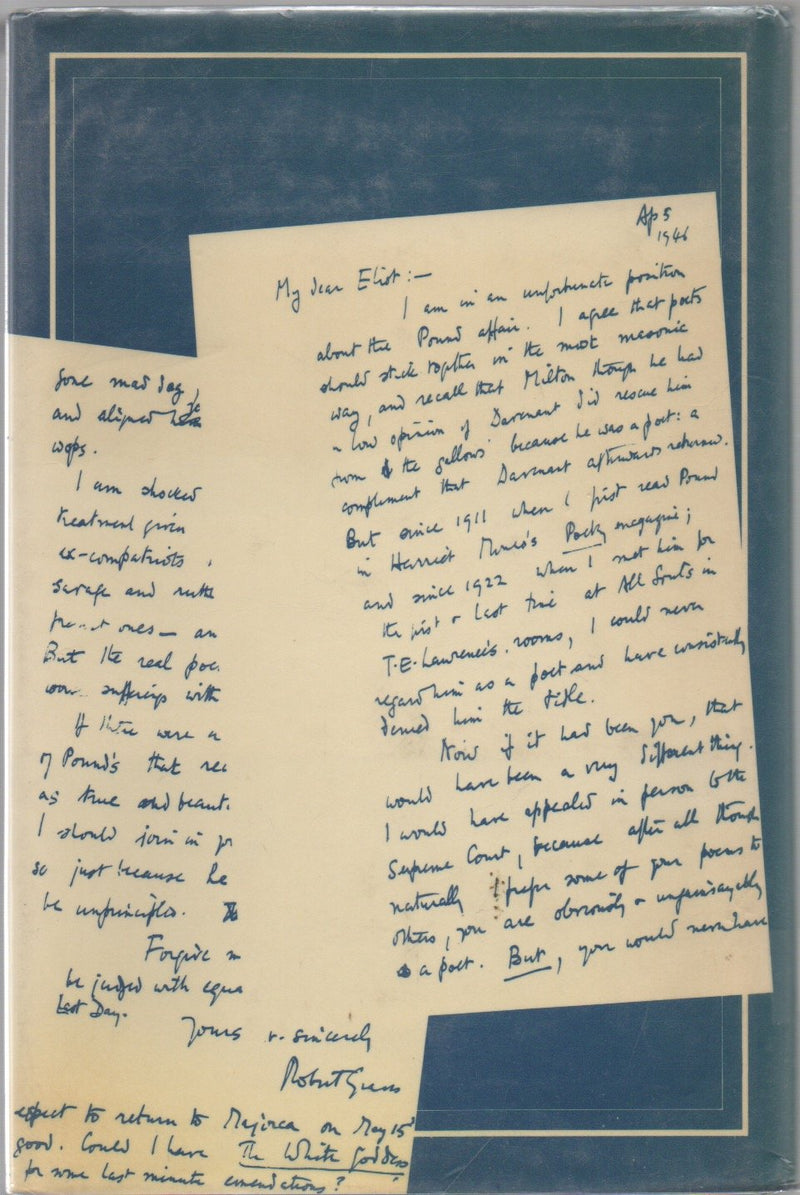 Ap 5
1946
My dear Eliot:—
I am in an unfortunate position
about the Pound affair. I agree that poets
should stick together in the most masonic
way, and recall that Milton though he had
a low opinion of Davenant did rescue him
from the gallows because he was a poet: a
compliment that Davenant afterwards returned.
But since 1911 when I first read Pound
in Harriet Monro's Poetry magazine;
and since 1922 when I met him for
the first & last time at All Souls in
T.E. Lawrence's rooms, I could never
regard him as a poet and have consistently
denied him the title.
Now if it had been you, that
would have been a very different thing.
I would have appealed in person to the
Supreme Court, because after all though
naturally I prefer some of your poems to
others, you are obviously & ungainsayably
a poet. But, you would never have
gone mad dog,
and aligned
wops.
I am shocked
treatment given
ex-compatriots
savage and ruth
ones— an
But the real poe
sufferings with
If there were a
of Pound's that rec
as true and beaut
I should join in yr
so just because he
be unprincipled.
Forgive m
be judged with equa
Last Day.
Yours v. sincerely
Robert Graves
expect to return to Majorca on May 15
good. Could I have The White Goddess
for some last minute emendations?